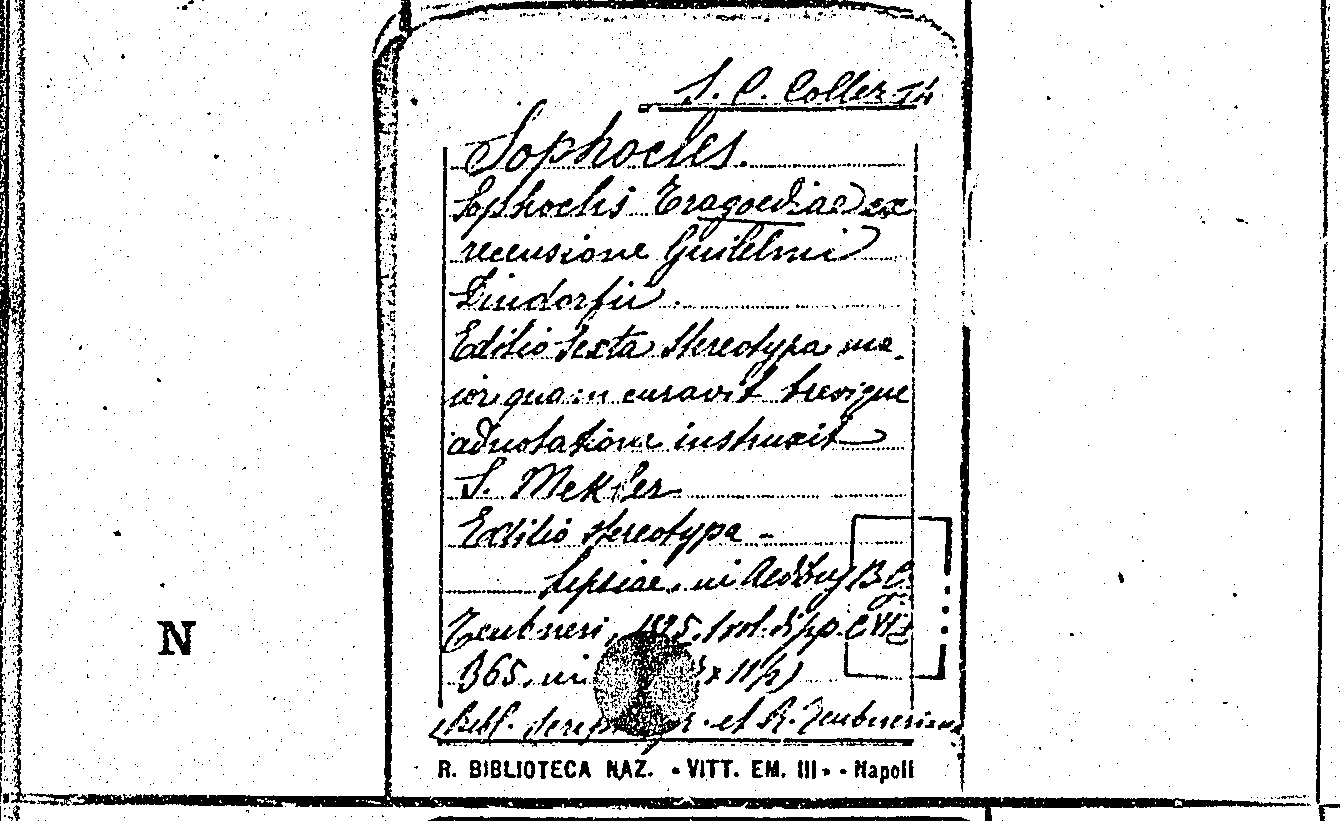 S. C. Collez 14
Sophocles.
Sophoclis Tragoediae ex
recensione Guilelmi
Dindorfii.
Editio sexta stereotypa ma-
ior quam curavit brevique
adnotatione instruxit
S. Mekler
Editio stereotypa -
Lipsiae, in Aedibus B. G.
Teubneri, 1885. 1 vol. di pp. CVI
N
365, in
Bibl. script. gr. et R. Teubneriana
R. BIBLIOTECA NAZ. «VITT. EM. III» - Napoli